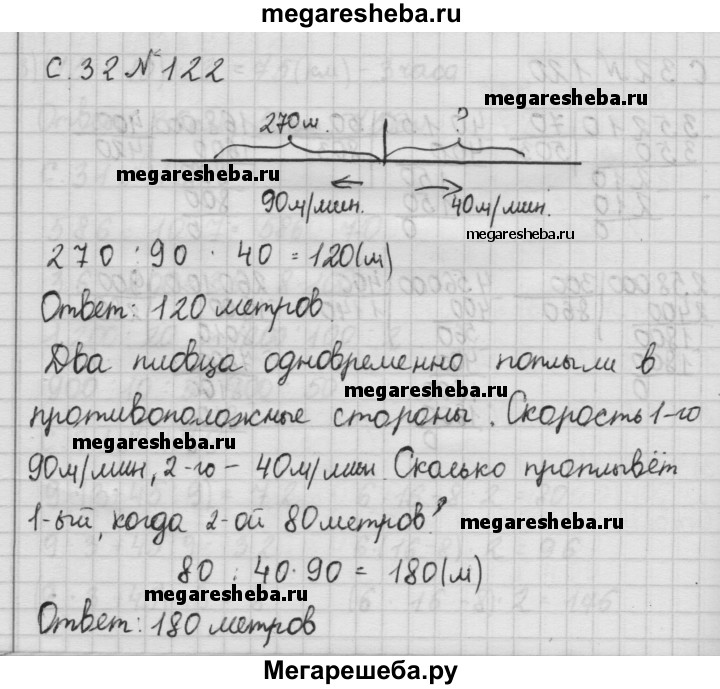 megaresheba.ru
С. 32 № 122
megaresheba.ru
270 м. ?
megaresheba.ru
90 м/мин. 40 м/мин.
megaresheba.ru
270 : 90 · 40 = 120 (м)
Ответ: 120 метров
Два пловца одновременно поплыли в
megaresheba.ru
противоположные стороны. Скорость 1-го
megaresheba.ru
90 м/мин, 2-го – 40 м/мин. Сколько проплывёт
1-ый, когда 2-ой 80 метров?
megaresheba.ru
80 : 40 · 90 = 180 (м)
megaresheba.ru
Ответ: 180 метров
Мегарешеба.ру